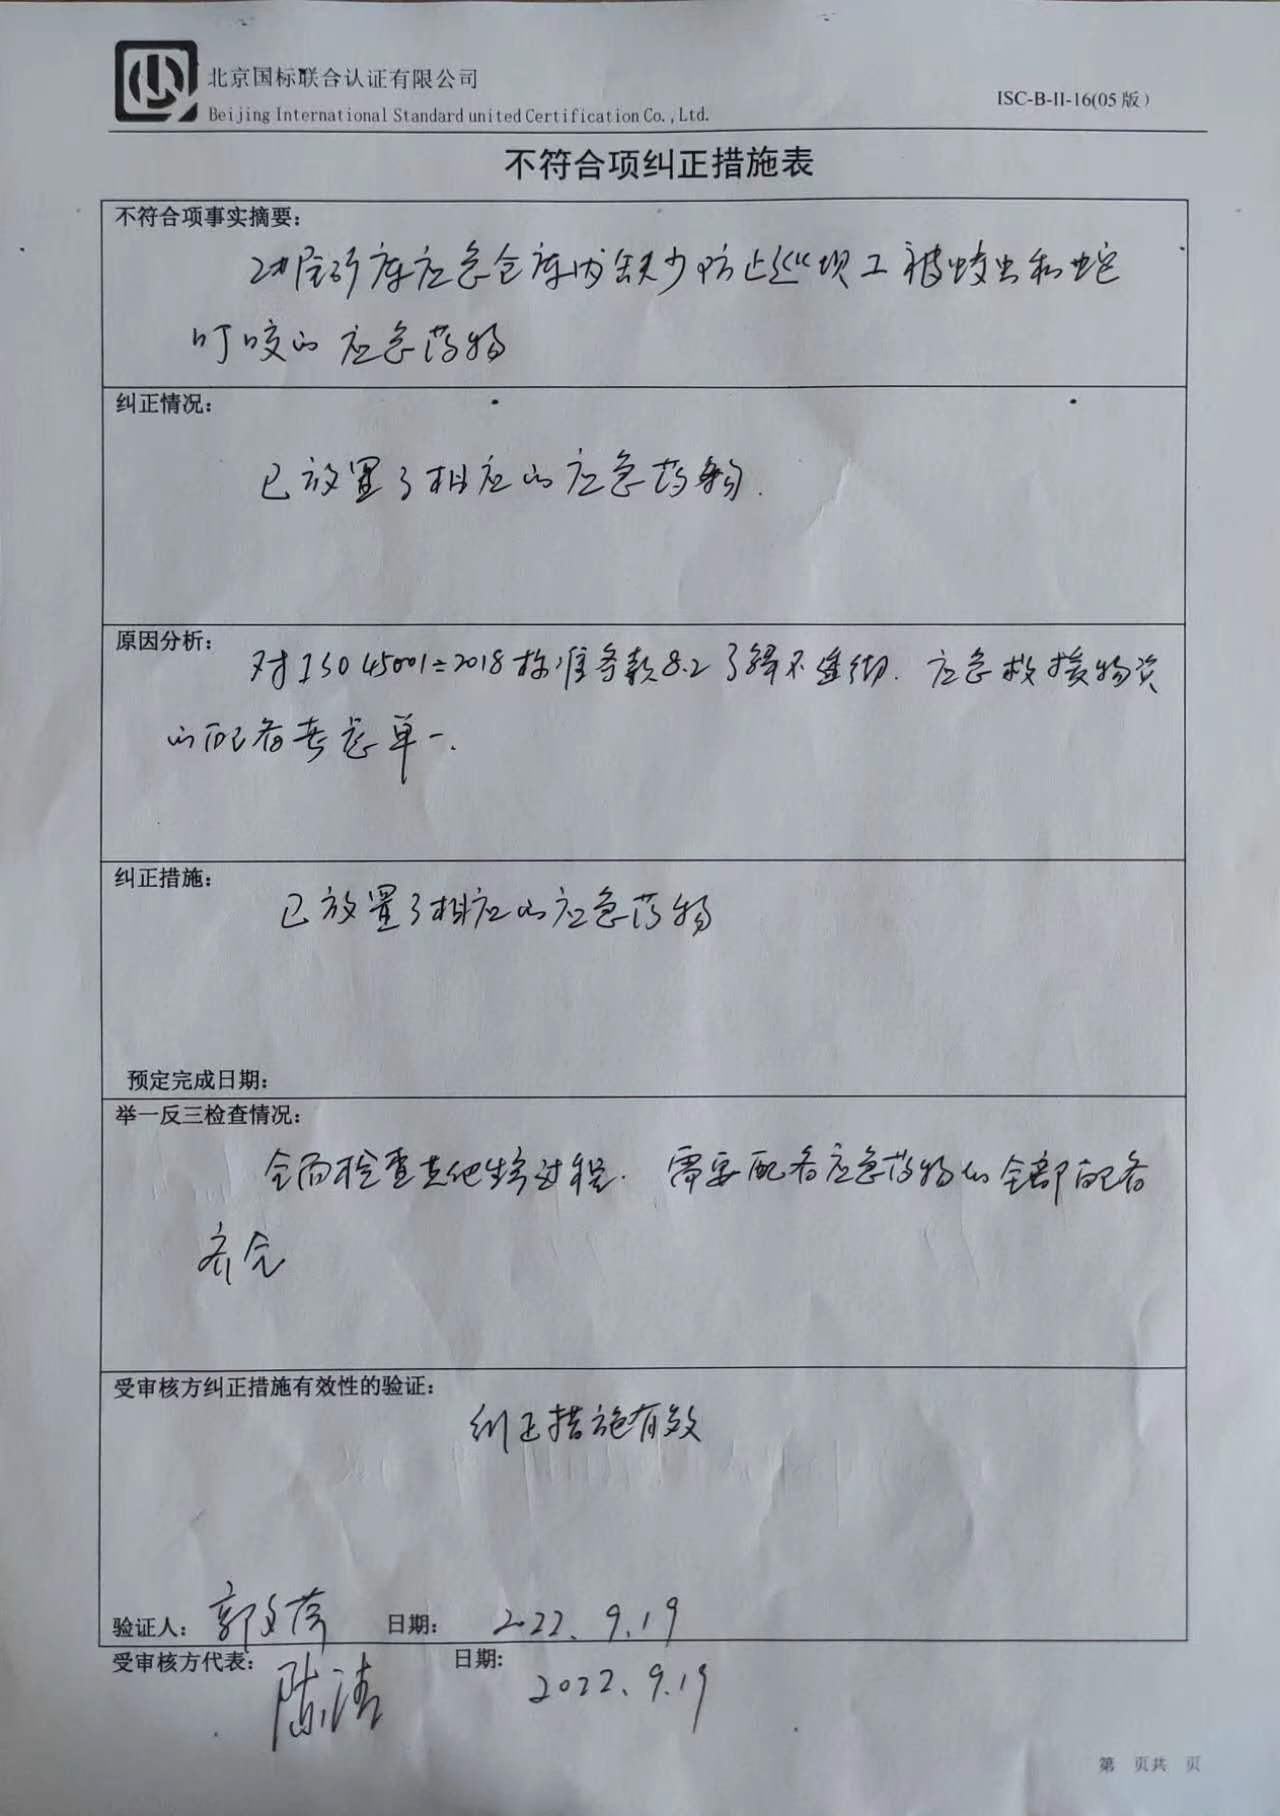 北京国标联合认证有限公司
Beijing International Standard united Certification Co.,Ltd.
ISC-B-II-16(05版)
不符合项纠正措施表
不符合项事实摘要:
2#尾矿库应急仓库内缺少防止巡坝工被蚊虫和蛇
叮咬的应急药物
纠正情况:
已放置了相应的应急药物.
原因分析:
对ISO 45001:2018标准条款8.2了解不透彻.应急救援物资
的配备考虑单一.
纠正措施:
已放置了相应的应急药物
预定完成日期:
举一反三检查情况:
全面检查其他生产过程.需要配备应急药物的全部配备
齐全
受审核方纠正措施有效性的验证:
纠正措施有效
验证人: 郭文 日期: 2022.9.19
受审核方代表: 陈涛 日期: 2022.9.19
第 页共 页